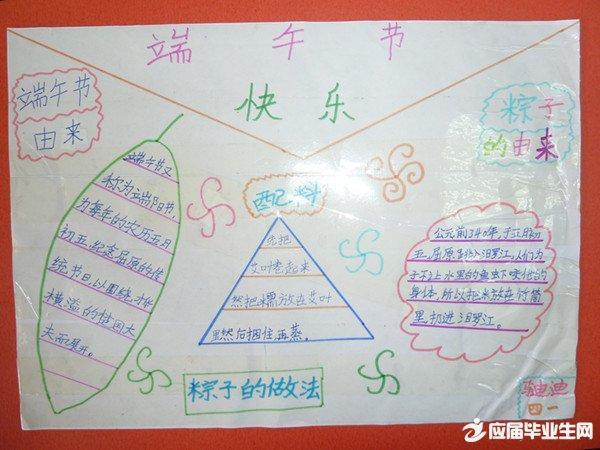 端午节
快乐
端午节
由来
粽子
的由来
端午节又
称为端阳节,
为每年的农历五月
初五,纪念屈原的传
统节日,以围绕才华
横溢的
夫而展开。
配料
先把
艾叶卷起来
然把糯放在艾叶
里然后捆住,再蒸。
公元前340年,于五月初
五,屈原跳入汨罗江,人们为
了不让水里的鱼虾啄他的
身体,所以把米放在竹筒
里,扔进汨罗江。
粽子的做法
四一
应届毕业生网